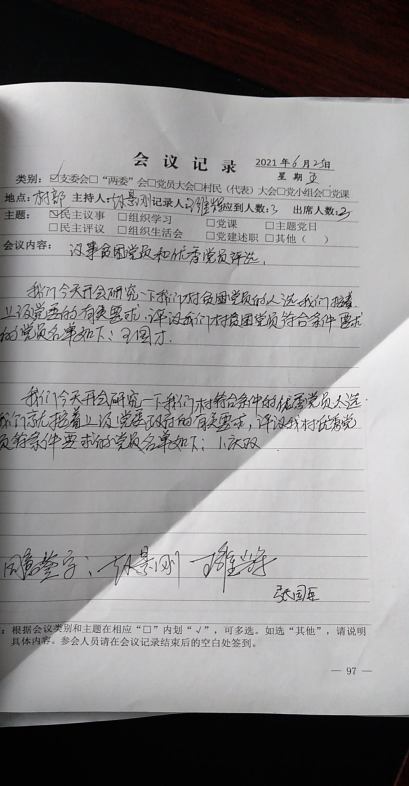 会议记录
2021年6月25日
星期五
类别:☑支委会□“两委”会□党员大会□村民(代表)大会□党小组会□党课
地点:村部 主持人:赵景刚 记录人: 应到人数:3 出席人数:3
主题:☑民主议事 □组织学习 □党课 □主题党日
□民主评议 □组织生活会 □党建述职 □其他( )
会议内容: 议事贫困党员和优秀党员评选.
我们今天开会研究一下我们村贫困党员的人选我们按着
上级党委的有关要求.评议我们村贫困党员符合条件要求
的党员名单如下:王国才.
我们今天开会研究一下我们村符合条件的优秀党员人选.
我们京东按着上级党委政府的有关要求,评议我村优秀党
员符条件要求的党员名单如下:
同意签字:赵景刚
张国臣
:根据会议类别和主题在相应“□”内划“√”,可多选。如选“其他”,请说明
具体内容。参会人员请在会议记录结束后的空白处签到。
— 97 —